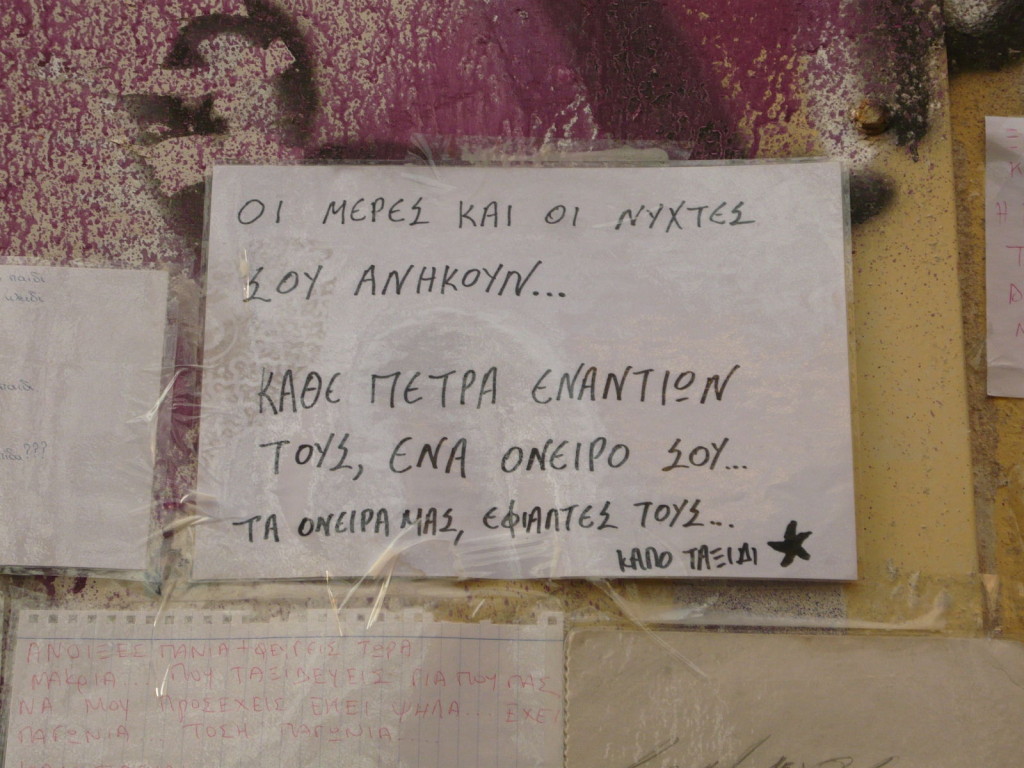 ΟΙ ΜΕΡΕΣ ΚΑΙ ΟΙ ΝΥΧΤΕΣ
ΣΟΥ ΑΝΗΚΟΥΝ...
ΚΑΘΕ ΠΕΤΡΑ ΕΝΑΝΤΙΩΝ
ΤΟΥΣ, ΕΝΑ ΟΝΕΙΡΟ ΣΟΥ...
ΤΑ ΟΝΕΙΡΑ ΜΑΣ, ΕΦΙΑΛΤΕΣ ΤΟΥΣ...
ΚΑΛΟ ΤΑΞΙΔΙ
ΑΝΟΙΞΕΣ ΠΑΝΙΑ + ΦΕΥΓΕΙΣ ΤΩΡΑ
ΜΑΚΡΙΑ... ΠΟΥ ΤΑΞΙΔΕΥΕΙΣ ΓΙΑ ΠΟΥ ΠΑΣ
ΝΑ ΜΟΥ ΠΡΟΣΕΧΕΙΣ ΕΚΕΙ ΨΗΛΑ... ΕΧΕΙ
ΠΑΓΩΝΙΑ... ΤΟΣΗ ΠΑΓΩΝΙΑ...